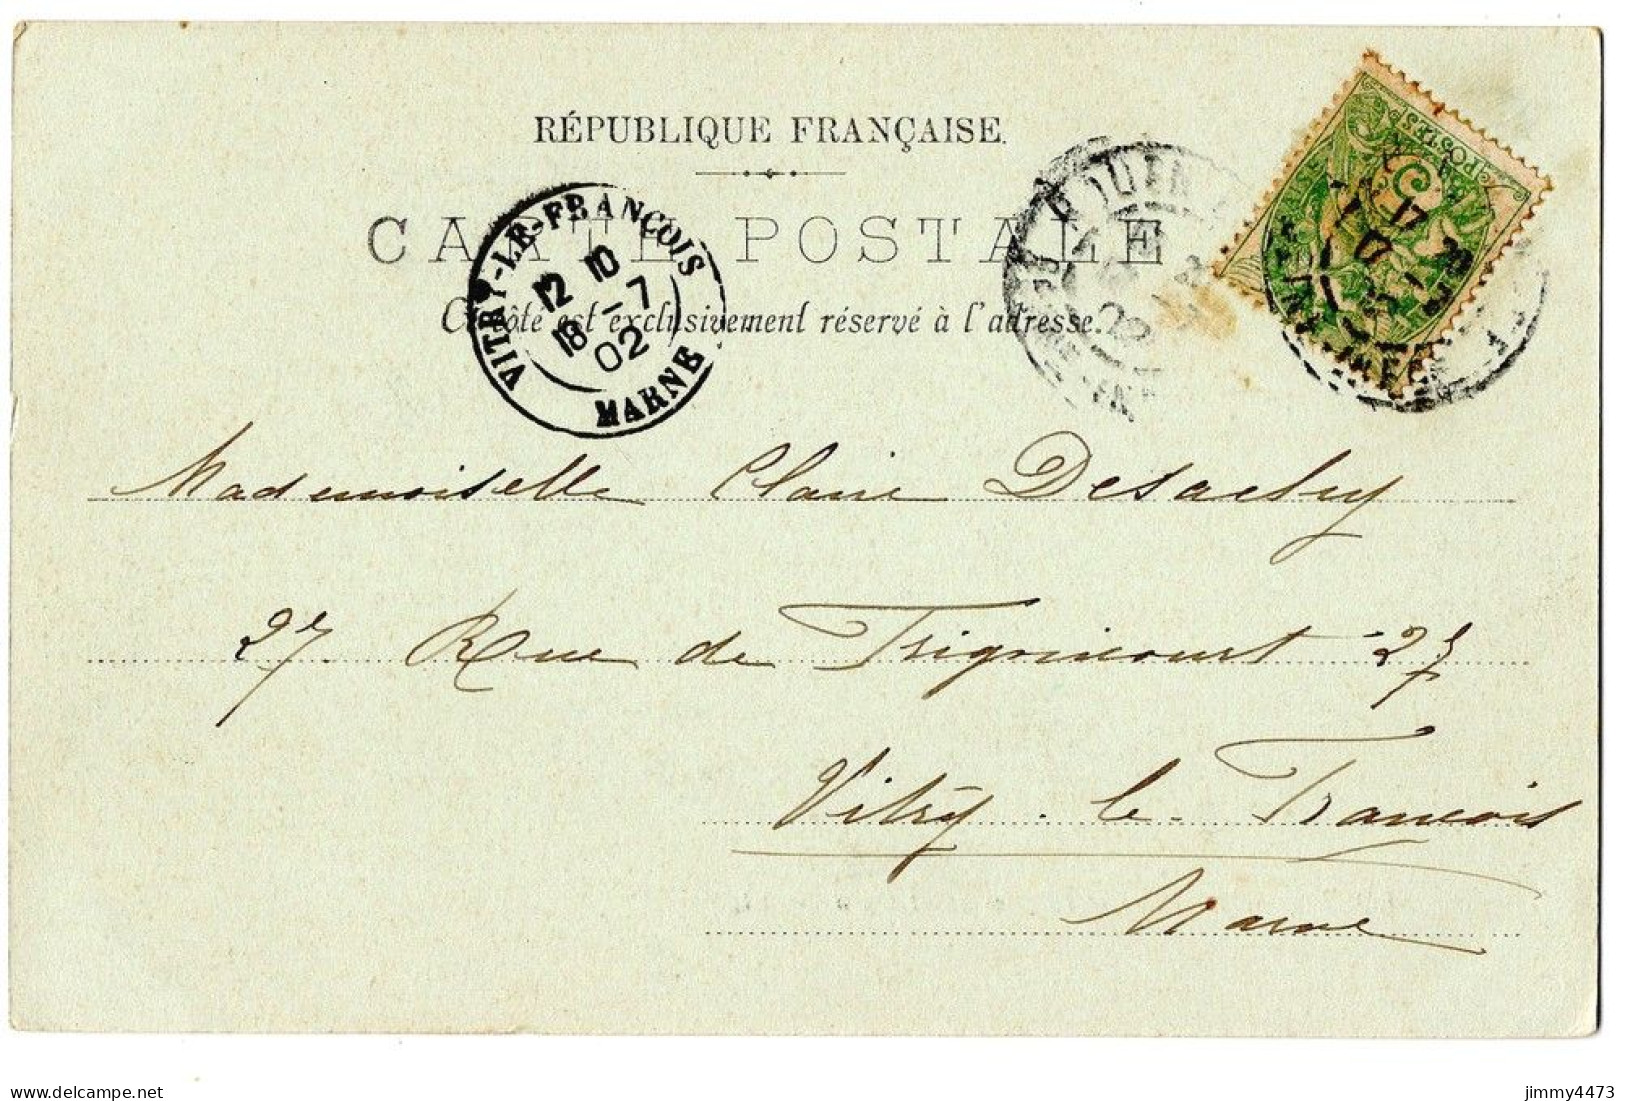 RÉPUBLIQUE FRANÇAISE.
CARTE POSTALE
Ce côté est exclusivement réservé à l'adresse.
VITRY-LE-FRANÇOIS
12 10
18 -7
02
MARNE
POSTES
5
Mademoiselle Claire Desachy
27 Rue de Frignicourt 27
Vitry-le-François
Marne
jimmy4473